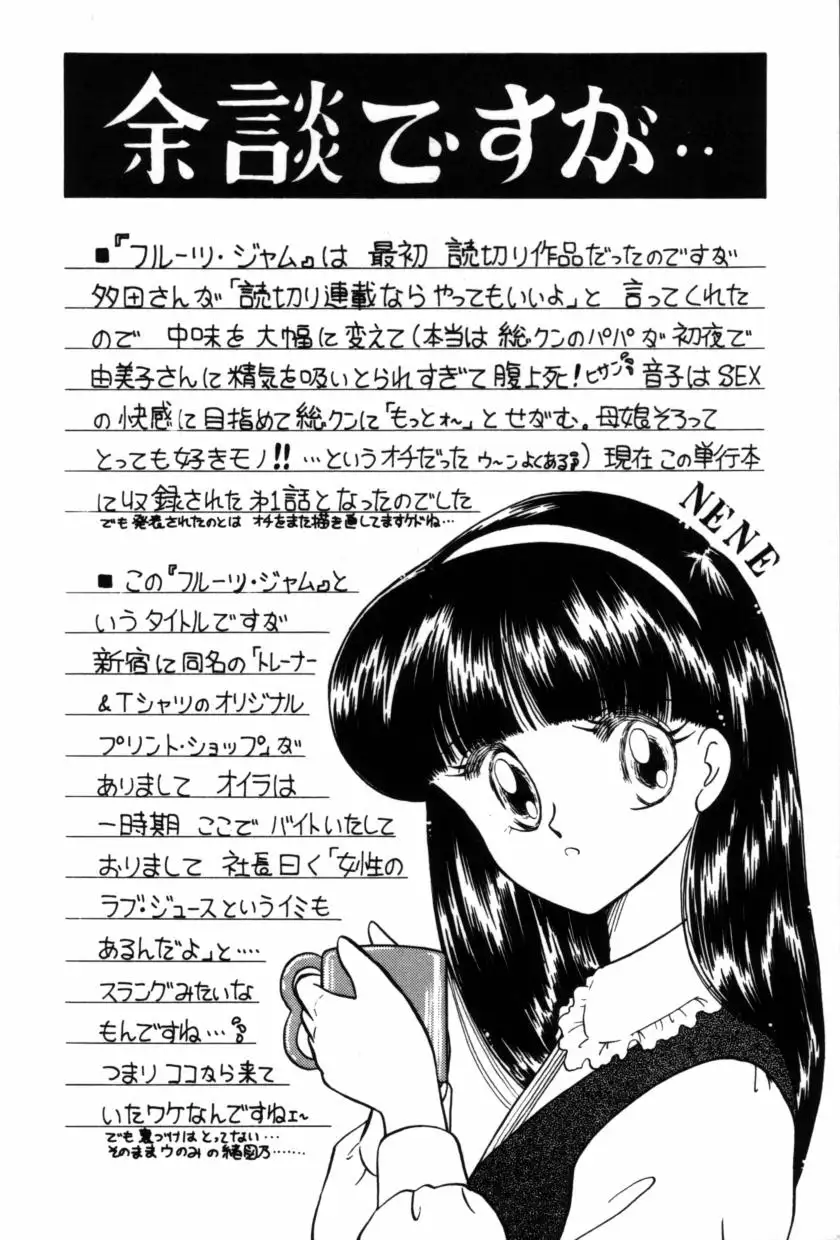 余談ですが‥
■『フルーツ・ジャム』は 最初 読切り作品だったのですが
多田さんが「読切り連載ならやってもいいよ」と 言ってくれた
ので 中味を大幅に変えて(本当は 総クンのパパが 初夜で
由美子さんに精気を吸いとられすぎて腹上死!ヒサン 音子はSEX
の快感に目指めて総クンに「もっとォ〜」とせがむ。母娘そろって
とっても好きモノ!!…というオチだった ウ〜ンよくある)現在この単行本
に収録された 第1話となったのでした
でも発表されたのとは オチをまた描き直してますケドね…
NENE
■ この『フルーツ・ジャム』と
いうタイトルですが
新宿に同名の「トレーナー
&Tシャツのオリジナル
プリント・ショップ」が
ありまして オイラは
一時期 ここで バイトいたして
おりまして 社長曰く「女性の
ラブ・ジュースというイミも
あるんだよ」と‥‥
スラングみたいな
もんですね…
つまり ココから来て
いたワケなんですねェ〜
でも裏づけはとってない…
そのままウのみの緒図乃‥‥‥